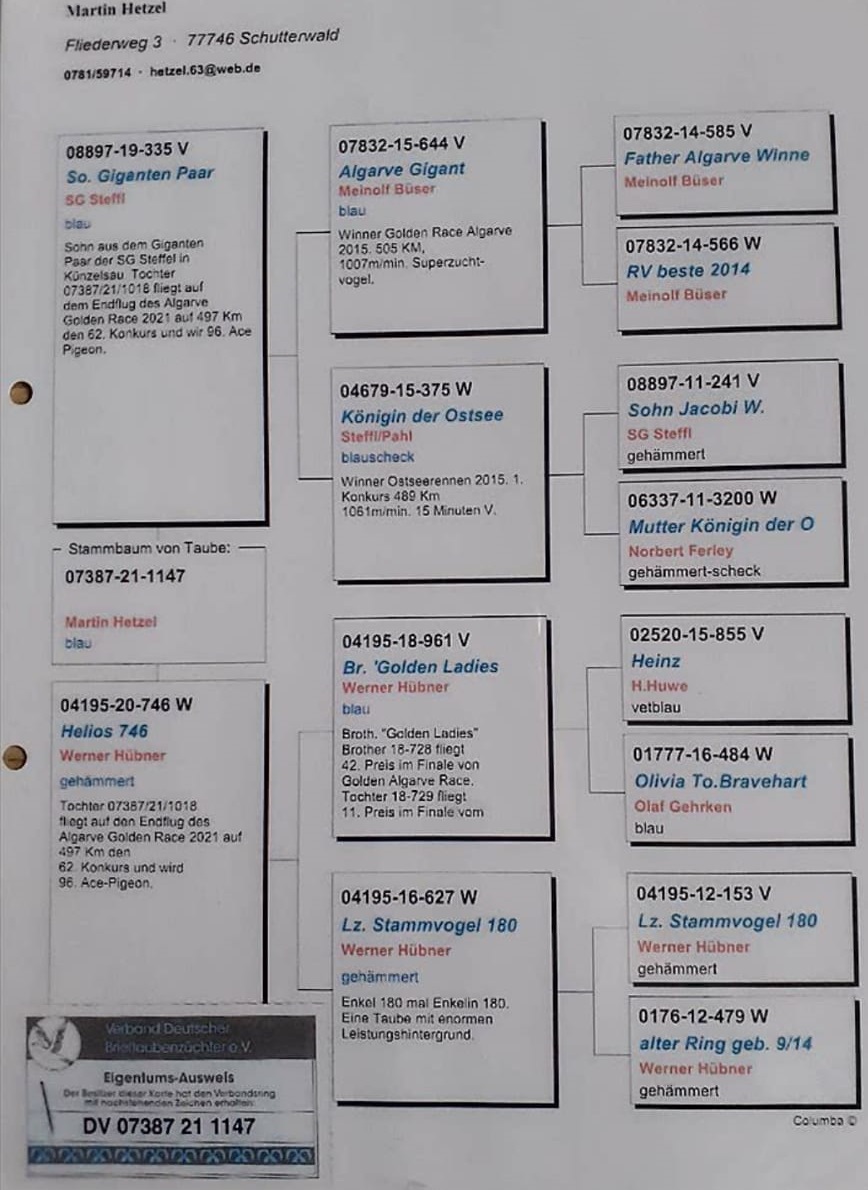 Martin Hetzel
Fliederweg 3 · 77746 Schutterwald
0781/59714 · hetzel.63@web.de
08897-19-335 V
So. Giganten Paar
SG Steffl
blau
Sohn aus dem Giganten
Paar der SG Steffel in
Künzelsau. Tochter
07387/21/1018 fliegt auf
dem Endflug des Algarve
Golden Race 2021 auf 497 Km
den 62. Konkurs und wir 96. Ace
Pigeon.
Stammbaum von Taube:
07387-21-1147
Martin Hetzel
blau
04195-20-746 W
Helios 746
Werner Hübner
gehämmert
Tochter 07387/21/1018
fliegt auf den Endflug des
Algarve Golden Race 2021 auf
497 Km den
62. Konkurs und wird
96. Ace-Pigeon.
07832-15-644 V
Algarve Gigant
Meinolf Büser
blau
Winner Golden Race Algarve
2015. 505 KM,
1007m/min. Superzucht-
vogel.
04679-15-375 W
Königin der Ostsee
Steffl/Pahl
blauscheck
Winner Ostseerennen 2015. 1.
Konkurs 489 Km
1061m/min. 15 Minuten V.
04195-18-961 V
Br. 'Golden Ladies
Werner Hübner
blau
Broth. "Golden Ladies"
Brother 18-728 fliegt
42. Preis im Finale von
Golden Algarve Race.
Tochter 18-729 fliegt
11. Preis im Finale vom
04195-16-627 W
Lz. Stammvogel 180
Werner Hübner
gehämmert
Enkel 180 mal Enkelin 180.
Eine Taube mit enormen
Leistungshintergrund.
07832-14-585 V
Father Algarve Winne
Meinolf Büser
07832-14-566 W
RV beste 2014
Meinolf Büser
08897-11-241 V
Sohn Jacobi W.
SG Steffl
gehämmert
06337-11-3200 W
Mutter Königin der O
Norbert Ferley
gehämmert-scheck
02520-15-855 V
Heinz
H.Huwe
vetblau
01777-16-484 W
Olivia To.Bravehart
Olaf Gehrken
blau
04195-12-153 V
Lz. Stammvogel 180
Werner Hübner
gehämmert
0176-12-479 W
alter Ring geb. 9/14
Werner Hübner
gehämmert
Columba ©
Verband Deutscher
Brieftaubenzüchter e.V.
Eigentums-Ausweis
Der Besitzer dieser Karte hat den Verbandsring
mit nachstehenden Zeichen erhalten:
DV 07387 21 1147